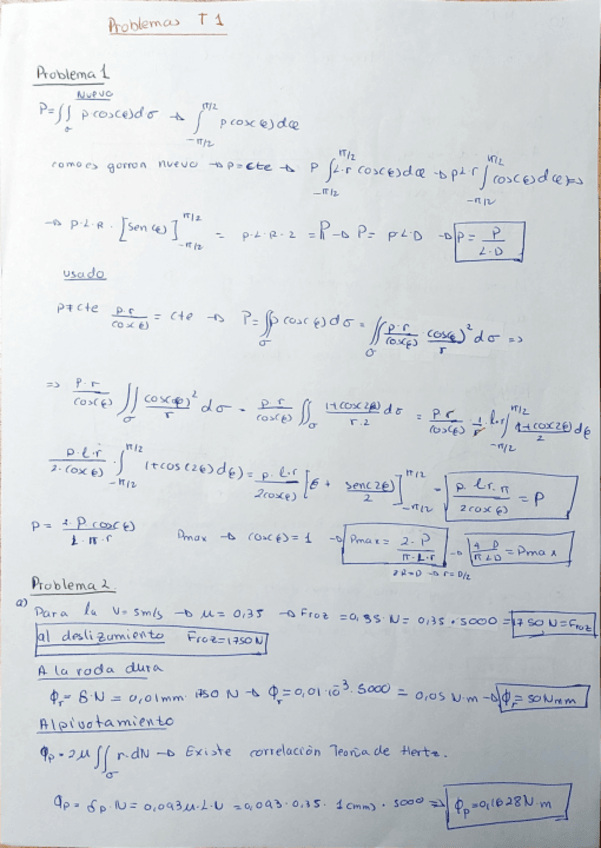 Problemas T 1
Problema 1
Nuevo
P = ∬_σ p cos(φ) dσ → ∫_{-π/2}^{π/2} p cos(φ) dφ
como es gorron nuevo → p = cte → P ∫_{-π/2}^{π/2} L·r cos(φ) dφ → p L r ∫_{-π/2}^{π/2} cos(φ) dφ ⇒
→ p·L·R · [sen(φ)]_{-π/2}^{π/2} = p·L·R·2 = P → P = p·L·D → p = P / L·D
usado
p ≠ cte p·r / cos(φ) = cte → P = ∬_σ p cos(φ) dσ = ∬_σ p·r / cos(φ) · cos(φ)² / r dσ ⇒
⇒ p·r / cos(φ) ∬_σ cos(φ)² / r dσ = p·r / cos(φ) ∬_σ 1+cos(2φ) / r·2 dσ = p·r / cos(φ) · 1/r · L·r ∫_{-π/2}^{π/2} 1+cos(2φ) / 2 dφ
p·L·r / 2·cos(φ) · ∫_{-π/2}^{π/2} 1+cos(2φ) dφ = p·L·r / 2cos(φ) [φ + sen(2φ) / 2]_{-π/2}^{π/2} = p·L·r·π / 2cos(φ) = P
P = 2·P cos(φ) / L·π·r Pmax → cos(φ) = 1 → Pmax = 2·P / π·L·r → 4 P / π L D = Pmax
2R = D → r = D/2
Problema 2
a) Para la V = 5m/s → μ = 0,35 → Froz = 0,35·N = 0,35 · 5000 = 1750 N = Froz
al deslizamiento Froz = 1750 N
A la roda dura
ϕr = δ·N = 0,01mm · 1750 N → ϕr = 0,01·10⁻³·5000 = 0,05 N·m → ϕr = 50 Nmm
Al pivotamiento
ϕp = 2μ ∬_σ r·dN → Existe correlación Teoria de Hertz.
ϕp = δp·N = 0,093 μ·L·N = 0,093 · 0,35 · 1(mm) · 5000 ⇒ ϕp = 0,1628 N·m